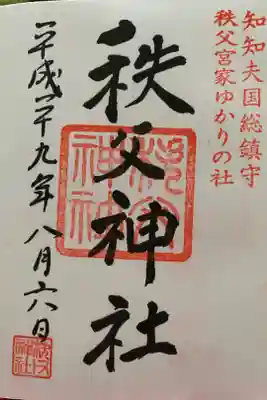 知知夫国総鎮守
秩父宮家ゆかりの社
秩父神社
秩父神社
平成二十九年八月六日
秩父神社